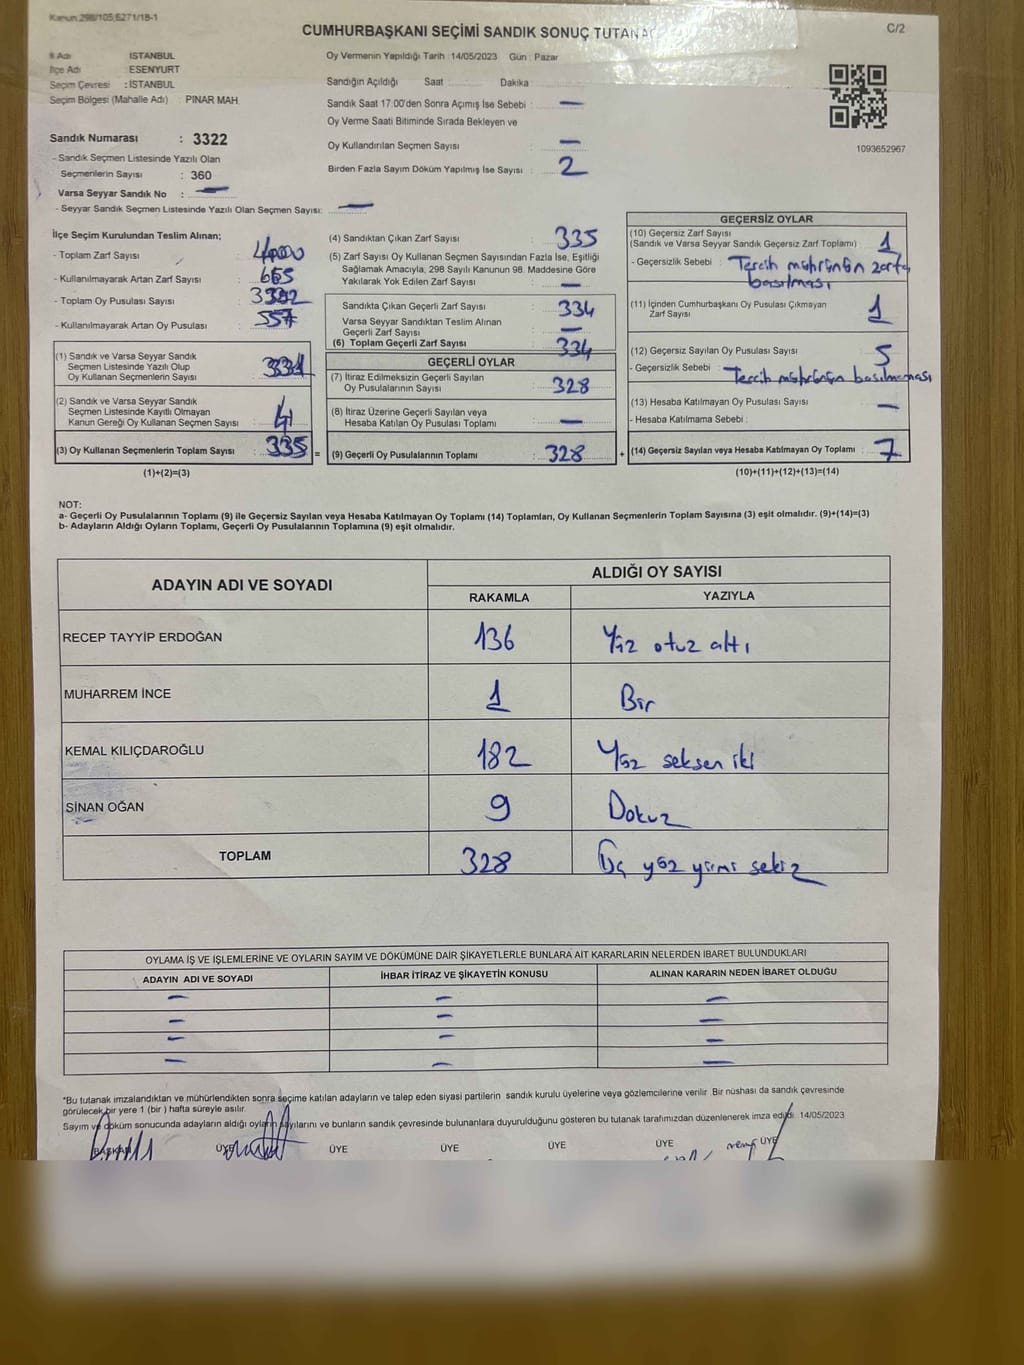 Kanun 298/105,5271/18-1
CUMHURBAŞKANI SEÇİMİ SANDIK SONUÇ TUTANA
C/2
Adı : İSTANBUL
İlçe Adı : ESENYURT
Seçim Çevresi : İSTANBUL
Seçim Bölgesi (Mahalle Adı) : PINAR MAH
Sandık Numarası : 3322
- Sandık Seçmen Listesinde Yazılı Olan
Seçmenlerin Sayısı : 360
Varsa Seyyar Sandık No : —
- Seyyar Sandık Seçmen Listesinde Yazılı Olan Seçmen Sayısı: —
Oy Vermenin Yapıldığı Tarih : 14/05/2023 Gün : Pazar
Sandığın Açıldığı Saat Dakika
Sandık Saat 17:00'den Sonra Açımış İse Sebebi : —
Oy Verme Saati Bitiminde Sırada Bekleyen ve
Oy Kullandırılan Seçmen Sayısı : —
Birden Fazla Sayım Döküm Yapılmış İse Sayısı : 2
1093652967
İlçe Seçim Kurulundan Teslim Alınan;
- Toplam Zarf Sayısı : 4000
- Kullanılmayarak Artan Zarf Sayısı : 665
- Toplam Oy Pusulası Sayısı :
- Kullanılmayarak Artan Oy Pusulası : 557
(1) Sandık ve Varsa Seyyar Sandık
Seçmen Listesinde Yazılı Olup
Oy Kullanan Seçmenlerin Sayısı :
(2) Sandık ve Varsa Seyyar Sandık
Seçmen Listesinde Kayıtlı Olmayan
Kanun Gereği Oy Kullanan Seçmen Sayısı :
(3) Oy Kullanan Seçmenlerin Toplam Sayısı : 335
(1)+(2)=(3)
(4) Sandıktan Çıkan Zarf Sayısı : 335
(5) Zarf Sayısı Oy Kullanan Seçmen Sayısından Fazla İse, Eşitliği
Sağlamak Amacıyla, 298 Sayılı Kanunun 98. Maddesine Göre
Yakılarak Yok Edilen Zarf Sayısı : —
Sandıkta Çıkan Geçerli Zarf Sayısı : 334
Varsa Seyyar Sandıktan Teslim Alınan
Geçerli Zarf Sayısı : —
(6) Toplam Geçerli Zarf Sayısı : 334
GEÇERLİ OYLAR
(7) İtiraz Edilmeksizin Geçerli Sayılan
Oy Pusulasının Sayısı : 328
(8) İtiraz Üzerine Geçerli Sayılan veya
Hesaba Katılan Oy Pusulası Toplamı : —
= (9) Geçerli Oy Pusulalarının Toplamı : 328
GEÇERSİZ OYLAR
(10) Geçersiz Zarf Sayısı
(Sandık ve Varsa Seyyar Sandık Geçersiz Zarf Toplamı) : 1
- Geçersizlik Sebebi : Tercih mührünün zarfa
basılması
(11) İçinden Cumhurbaşkanı Oy Pusulası Çıkmayan
Zarf Sayısı : 1
(12) Geçersiz Sayılan Oy Pusulası Sayısı : 5
- Geçersizlik Sebebi : Tercih mührünün basılmaması
(13) Hesaba Katılmayan Oy Pusulası Sayısı : —
- Hesaba Katılmama Sebebi :
+ (14) Geçersiz Sayılan veya Hesaba Katılmayan Oy Toplamı : 7
(10)+(11)+(12)+(13)=(14)
NOT:
a- Geçerli Oy Pusulalarının Toplamı (9) ile Geçersiz Sayılan veya Hesaba Katılmayan Oy Toplamı (14) Toplamları, Oy Kullanan Seçmenlerin Toplam Sayısına (3) eşit olmalıdır. (9)+(14)=(3)
b- Adayların Aldığı Oyların Toplamı, Geçerli Oy Pusulalarının Toplamına (9) eşit olmalıdır.
ADAYIN ADI VE SOYADI ALDIĞI OY SAYISI
RAKAMLA YAZIYLA
RECEP TAYYİP ERDOĞAN 136 Yüz otuz altı
MUHARREM İNCE 1 Bir
KEMAL KILIÇDAROĞLU 182 Yüz seksen iki
SİNAN OĞAN 9 Dokuz
TOPLAM 328 Üç yüz yirmi sekiz
OYLAMA İŞ VE İŞLEMLERİNE VE OYLARIN SAYIM VE DÖKÜMÜNE DAİR ŞİKAYETLERLE BUNLARA AİT KARARLARIN NELERDEN İBARET BULUNDUKLARI
ADAYIN ADI VE SOYADI İHBAR İTİRAZ VE ŞİKAYETİN KONUSU ALINAN KARARIN NEDEN İBARET OLDUĞU
— — —
— — —
— — —
— — —
*Bu tutanak imzalandıktan ve mühürlendikten sonra seçime katılan adayların ve talep eden siyasi partilerin sandık kurulu üyelerine veya gözlemcilerine verilir. Bir nüshası da sandık çevresinde
görülecek bir yere 1 (bir ) hafta süreyle asılır.
Sayım ve döküm sonucunda adayların aldığı oyların sayılarını ve bunların sandık çevresinde bulunanlara duyurulduğunu gösteren bu tutanak tarafımızdan düzenlenerek imza edildi. 14/05/2023
BAŞKAN ÜYE ÜYE ÜYE ÜYE ÜYE ÜYE